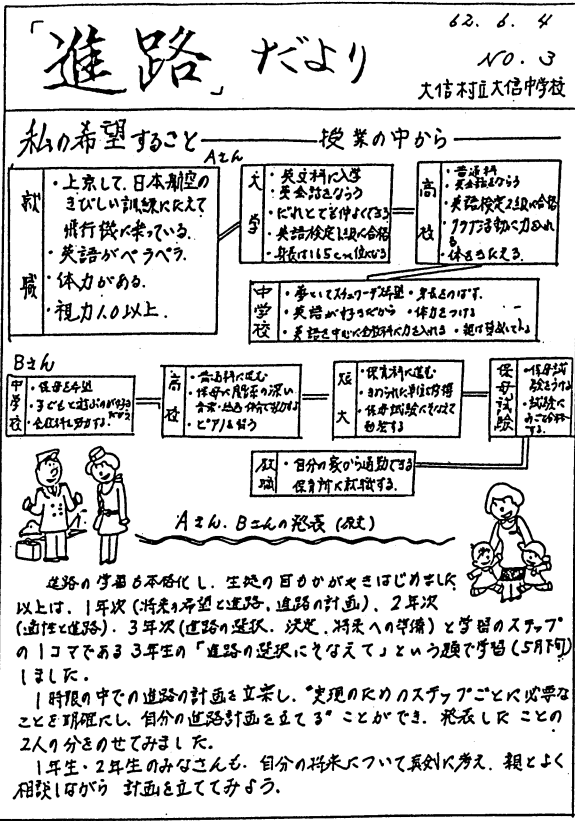 62.6.4
「進路」だより
NO.3
大信村立大信中学校
私の希望すること
授業の中から
Aさん
就職
・上京して、日本航空の
きびしい訓練にたえて
飛行機に乗っている。
・英語がペラペラ。
・体力がある。
・視力1.0以上.
大学
・英文科に入学
・英会話をならう
・だれとでも仲よくできる
・英語検定1級に合格
・身長は165cm位になる
高校
・普通科
・英会話をならう
・英語検定2級に合格
・クラブ活動に力を入れる
・体をきたえる.
中学校
・夢としてスチュワーデス希望 ・身長をのばす.
・英語が好きだから ・体力をつける
・英語を中心に全教科に力を入れる
Bさん
中学校
・保母を希望
・子どもと遊ぶのが好きだから
・全教科を努力する
高校
・普通科に進む
・保母に関係の深い
音楽・絵画・体育で努力する
・ピアノを習う
短大
・保育科に進む
・きめられた単位を修得
・保母試験にそなえて
勉強する
保母試験
・保母試験をうける
・試験にみごと合格する.
就職
・自分の家から通勤できる
保育所に就職する.
Aさん、Bさんの発表(原文)
進路の学習も本格化し、生徒の目もかがやきはじめました
以上は、1年次(将来の希望と進路、進路の計画)、2年次
(適性と進路)、3年次(進路の選択、決定、将来への準備)と学習のステップ
の1コマである3年生の「進路の選択にそなえて」という題で学習(5月下旬)
しました。
1時限の中での進路の計画を立案し、“実現のためのステップごとに必要な
ことを明確にし、自分の進路計画を立てる”ことができ、発表したことの
2人の分をのせてみました。
1年生・2年生のみなさんも、自分の将来について真剣に考え、親とよく
相談しながら 計画を立ててみよう.